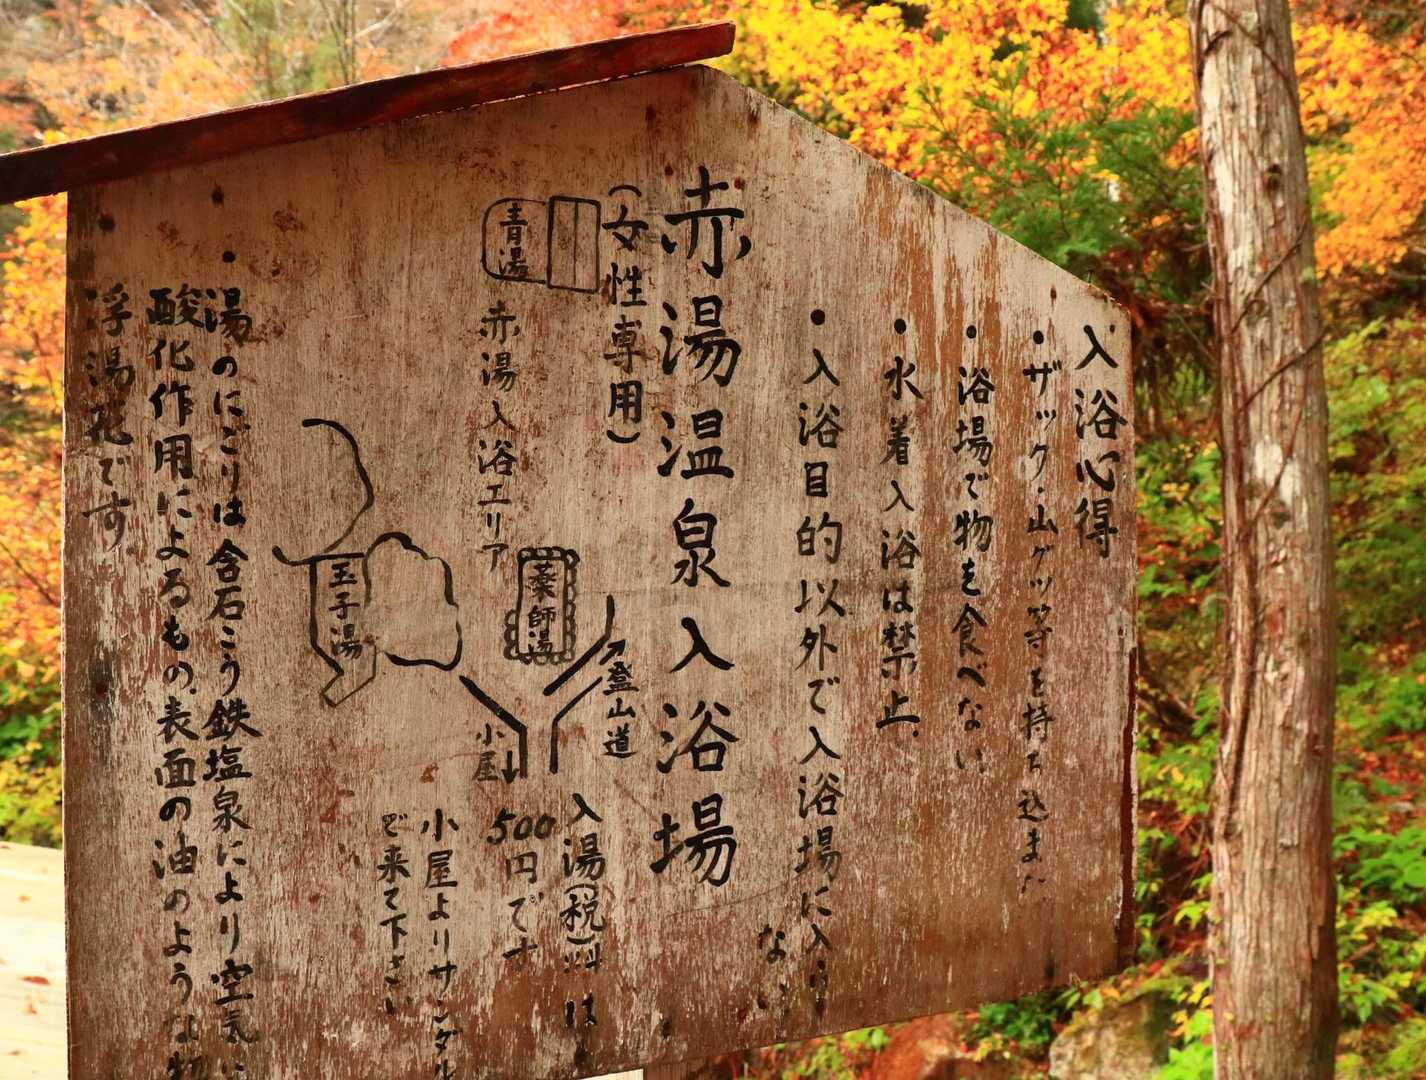 入浴心得
・ザック・山グッ等を持ち込ま
・浴場で物を食べない
・水着入浴は禁止.
・入浴目的以外で入浴場に入ら
ない
赤湯温泉入浴場
(女性専用)
青湯
赤湯入浴エリア
薬師湯
玉子湯
登山道
小屋
入湯(税)料は
500円です
小屋よりサンダル
で来て下さい
・湯のにごりは含石こう鉄塩泉により空気に
酸化作用によるもの、表面の油のような物
浮湯花です